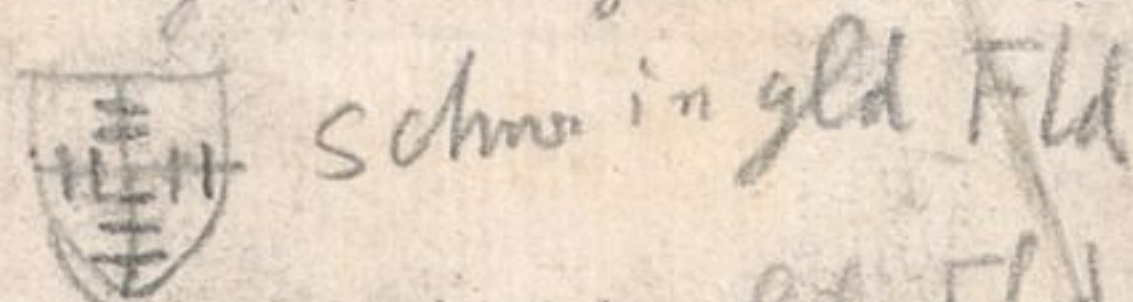 schw in gld Fld